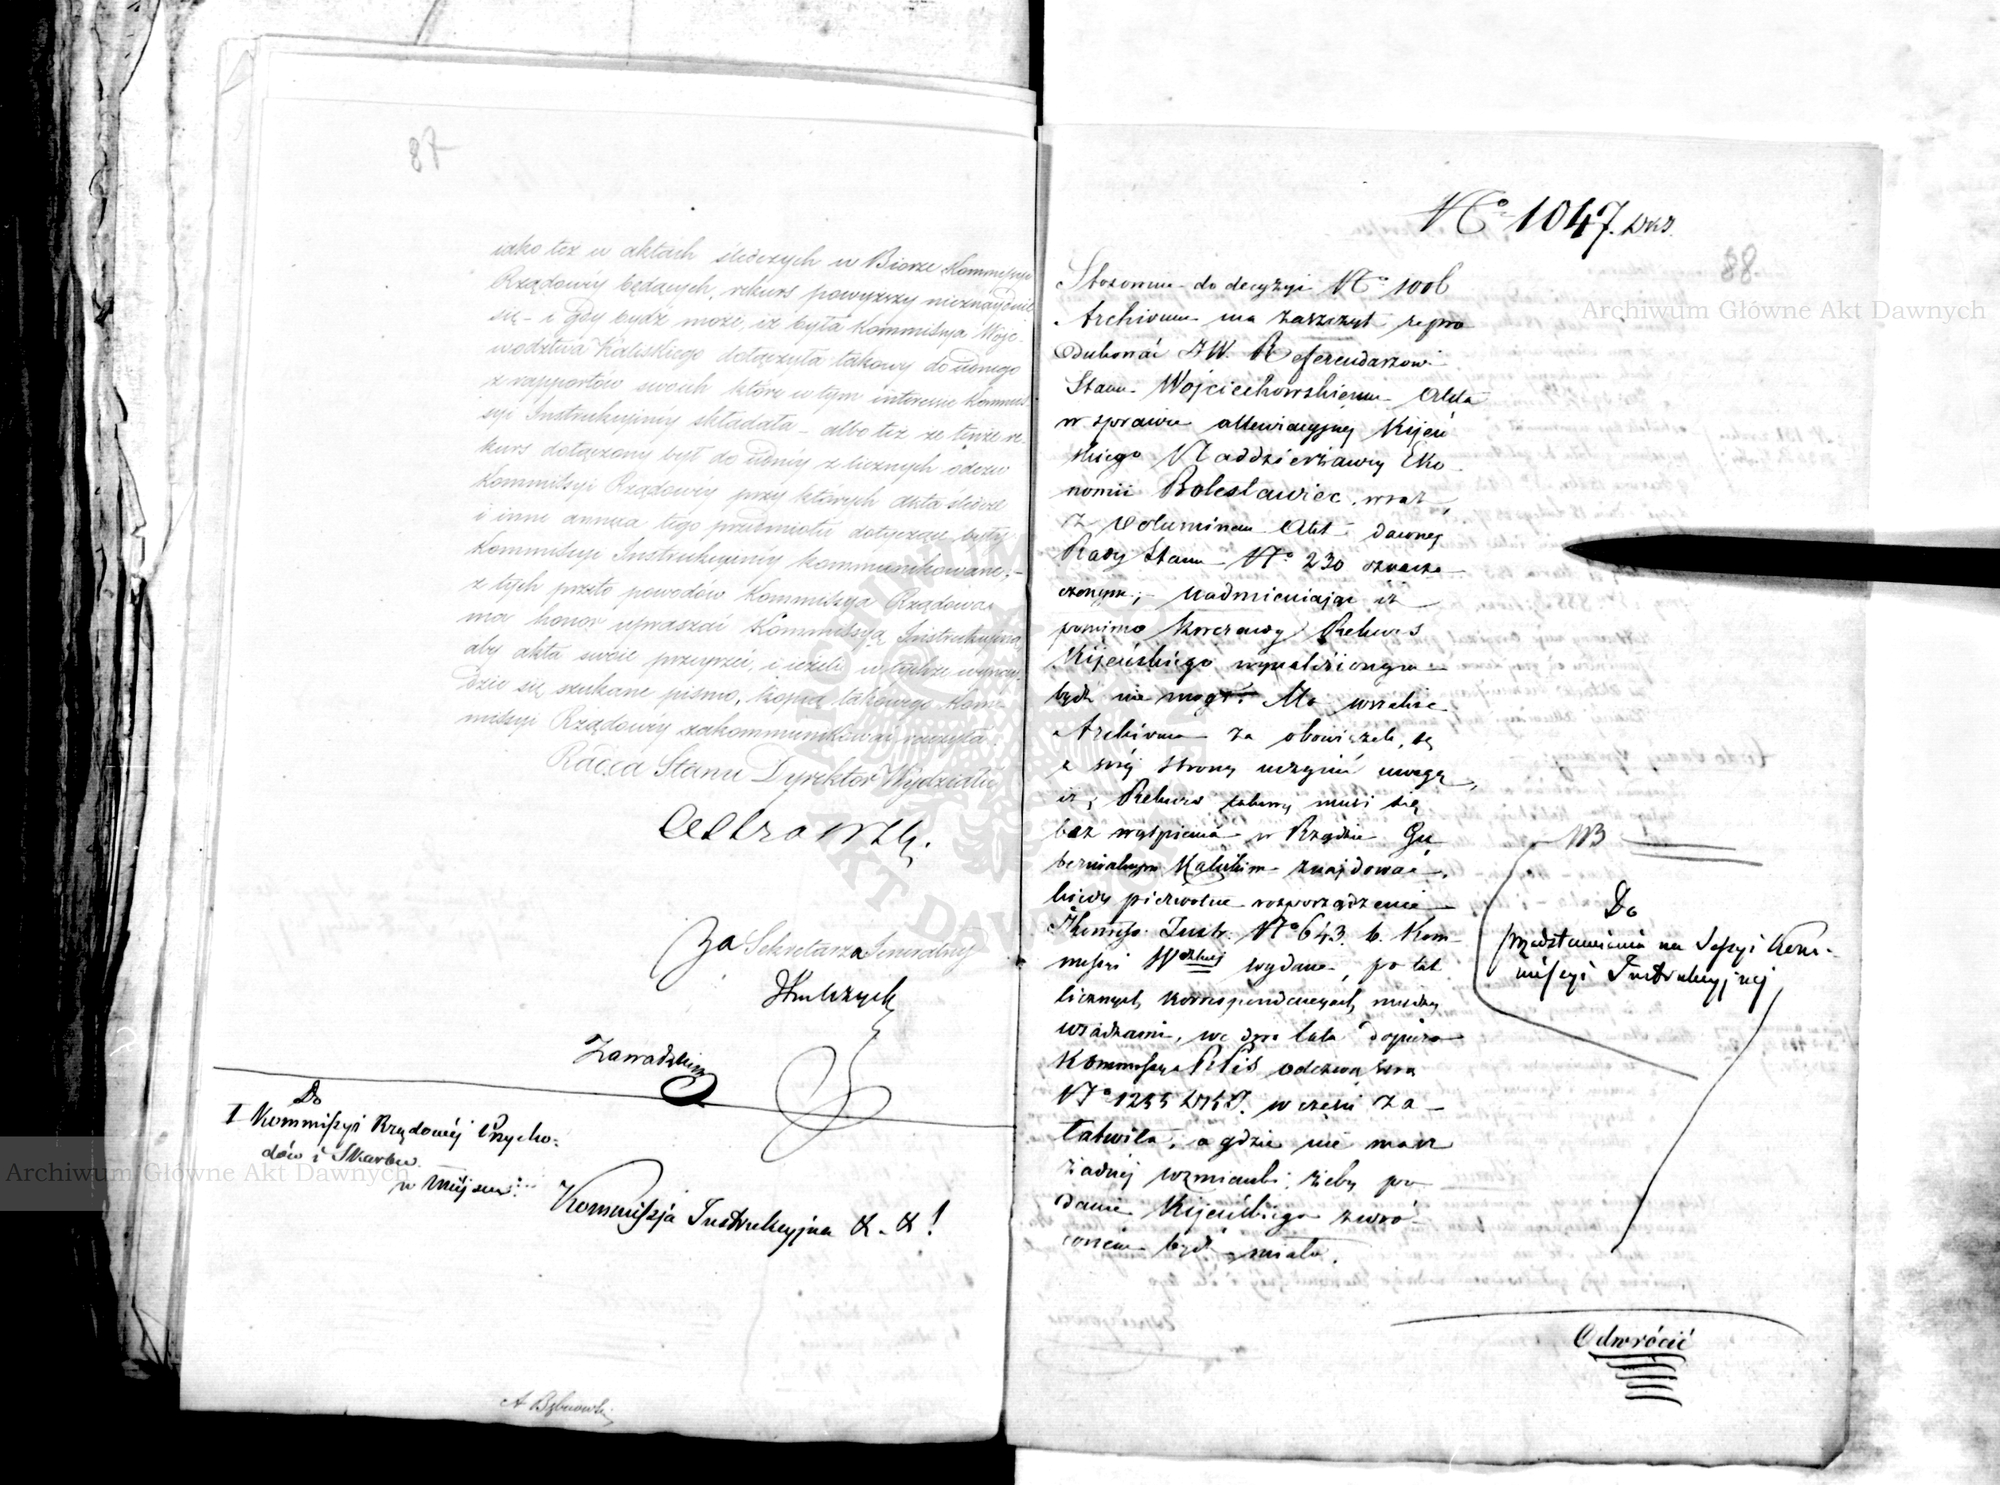 87
iako też w aktach śledczych w Biorze Kommissyi
Rządowéy będących, rekurs powyższy nieznayduie
się – i gdy bydź może, iż była Kommissya Woje-
wództwa Kaliskiego dołączyła takowy do iednego
z rapportów swoich które w tym interesie Kommis-
syi Instrukcyinéy składała – albo też że tenże re-
kurs dołączony był do iednéy z licznych odezw
Kommissyi Rządowéy przy których akta śledcze
i inne annexa tego przedmiotu dotyczące były
Kommissyi Instrukcyinéy kommunikowane, –
z tych przeto powodów Kommissya Rządowa
ma honor upraszać Kommissyą Instrukcyiną
aby akta swoie przeyrzeć, i ieżeli w także wynay-
dzie się szukane pismo, kopią takowego Kom-
missyi Rządowéy zakommunikować raczyła.
Radca Stanu Dyrektor Wydziału
Za Sekretarza Generalnego
Zawadzki
Do
I Kommissyi Rządowéj Przycho-
dów i Skarbu
w Miejscu
Kommissja Instrukcyjna & – & !
N° 1047.
88
Stosownie do decyzyi N° 1006
Archiwum ma zaszczyt repro
dukować JW. Referendarzowi
Stanu Wojciechowskiemu Akta
w sprawie allewiacyjnéj Kijeń
skiego Naddzierżawcy Eko-
nomii Bolesławiec, wraz
z voluminem Akt dawnéj
Rady Stanu N° 230 oznacz
czonym; – nadmieniając iż
pomimo Rekurs
Kijeńskiego wynalezionym
być nie mógł. Ma wszelako
Archiwum za obowiązek, tę
z swéj strony uczynić uwagę
iż, Rekurs takowy musi się
bez wątpienia w Rządzie Gu
bernialnym Kaliskim znajdować,
kiedy pierwotne rozporządzenie
Kommiss. Instr. N° 643. b. Kom-
missyi Wdzkiej wydane, po tak
licznych korrespondencyach między
władzami, we dwa lata dopiero
Kommissya odezwą swą
N° 1255 w części za-
łatwiła, a gdzie nie masz
żadnéj wzmianki, żeby po
danie Kijeńskiego zwró-
conem być miało.
NB
Do
przedstawienia na Sessyi Kom-
missyi Instrukcyjnej
Odwrócić
Archiwum Główne Akt Dawnych
Archiwum Główne Akt Dawnych